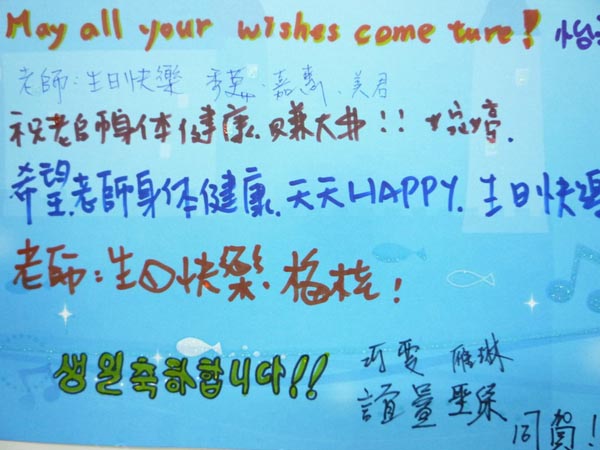 May all your wishes come ture! 怡
老師:生日快樂 秀 嘉惠. 美君
祝老師身体健康.賺大$!! 婷.
希望老師身体健康.天天HAPPY.生日快
老師:生日快樂. 梅桂!
생일축하합니다!!
雅琳
誼
同賀!